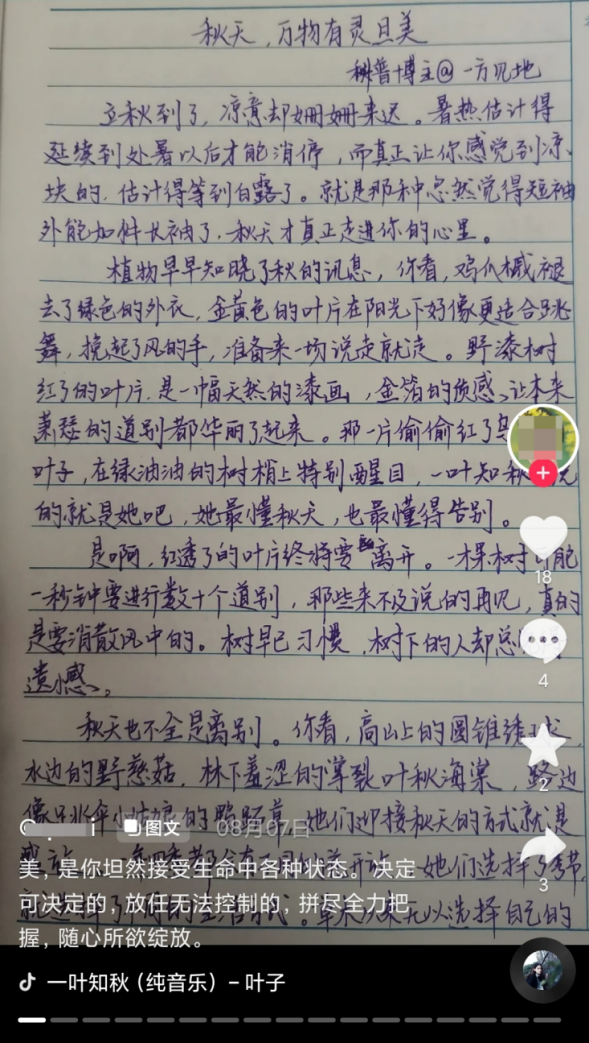 秋天，万物有灵且美
科普博主@一方见地
立秋到了，凉意却姗姗来迟。暑热估计得
延续到处暑以后才能消停，而真正让你感觉到凉
快的，估计得等到白露了。就是那种忽然觉得短袖
外能加件长袖了，秋天才真正走进你的心里。
植物早早知晓了秋的讯息，你看，鸡爪槭褪
去了绿色的外衣，金黄色的叶片在阳光下好像更适合跳
舞，挽起了风的手，准备来一场说走就走。野漆树
红了的叶片，是一幅天然的漆画，金箔的质感，让本来
萧瑟的道别都华丽了起来。那一片偷偷红了
叶子，在绿油油的树梢上特别醒目，一叶知秋
的就是她吧，她最懂秋天，也最懂得告别。
是啊，红透了的叶片终将要离开。一棵树可能
一秒钟要进行数十个道别，那些来不及说的再见，真的
是要消散风中的。树早已习惯，树下的人却总
遗憾。
秋天也不全是离别。你看，高山上的圆锥绣球，
水边的野慈菇，林下羞涩的掌裂叶秋海棠，路边
像只伞小姑娘的鸭跖草，她们迎接秋天的方式就是
她们选择了季节，
草木从来无以选择自己的
图文 08月07日
美，是你坦然接受生命中各种状态。决定
可决定的，放任无法控制的，拼尽全力把
握，随心所欲绽放。
一叶知秋（纯音乐）– 叶子
18
4
2
3